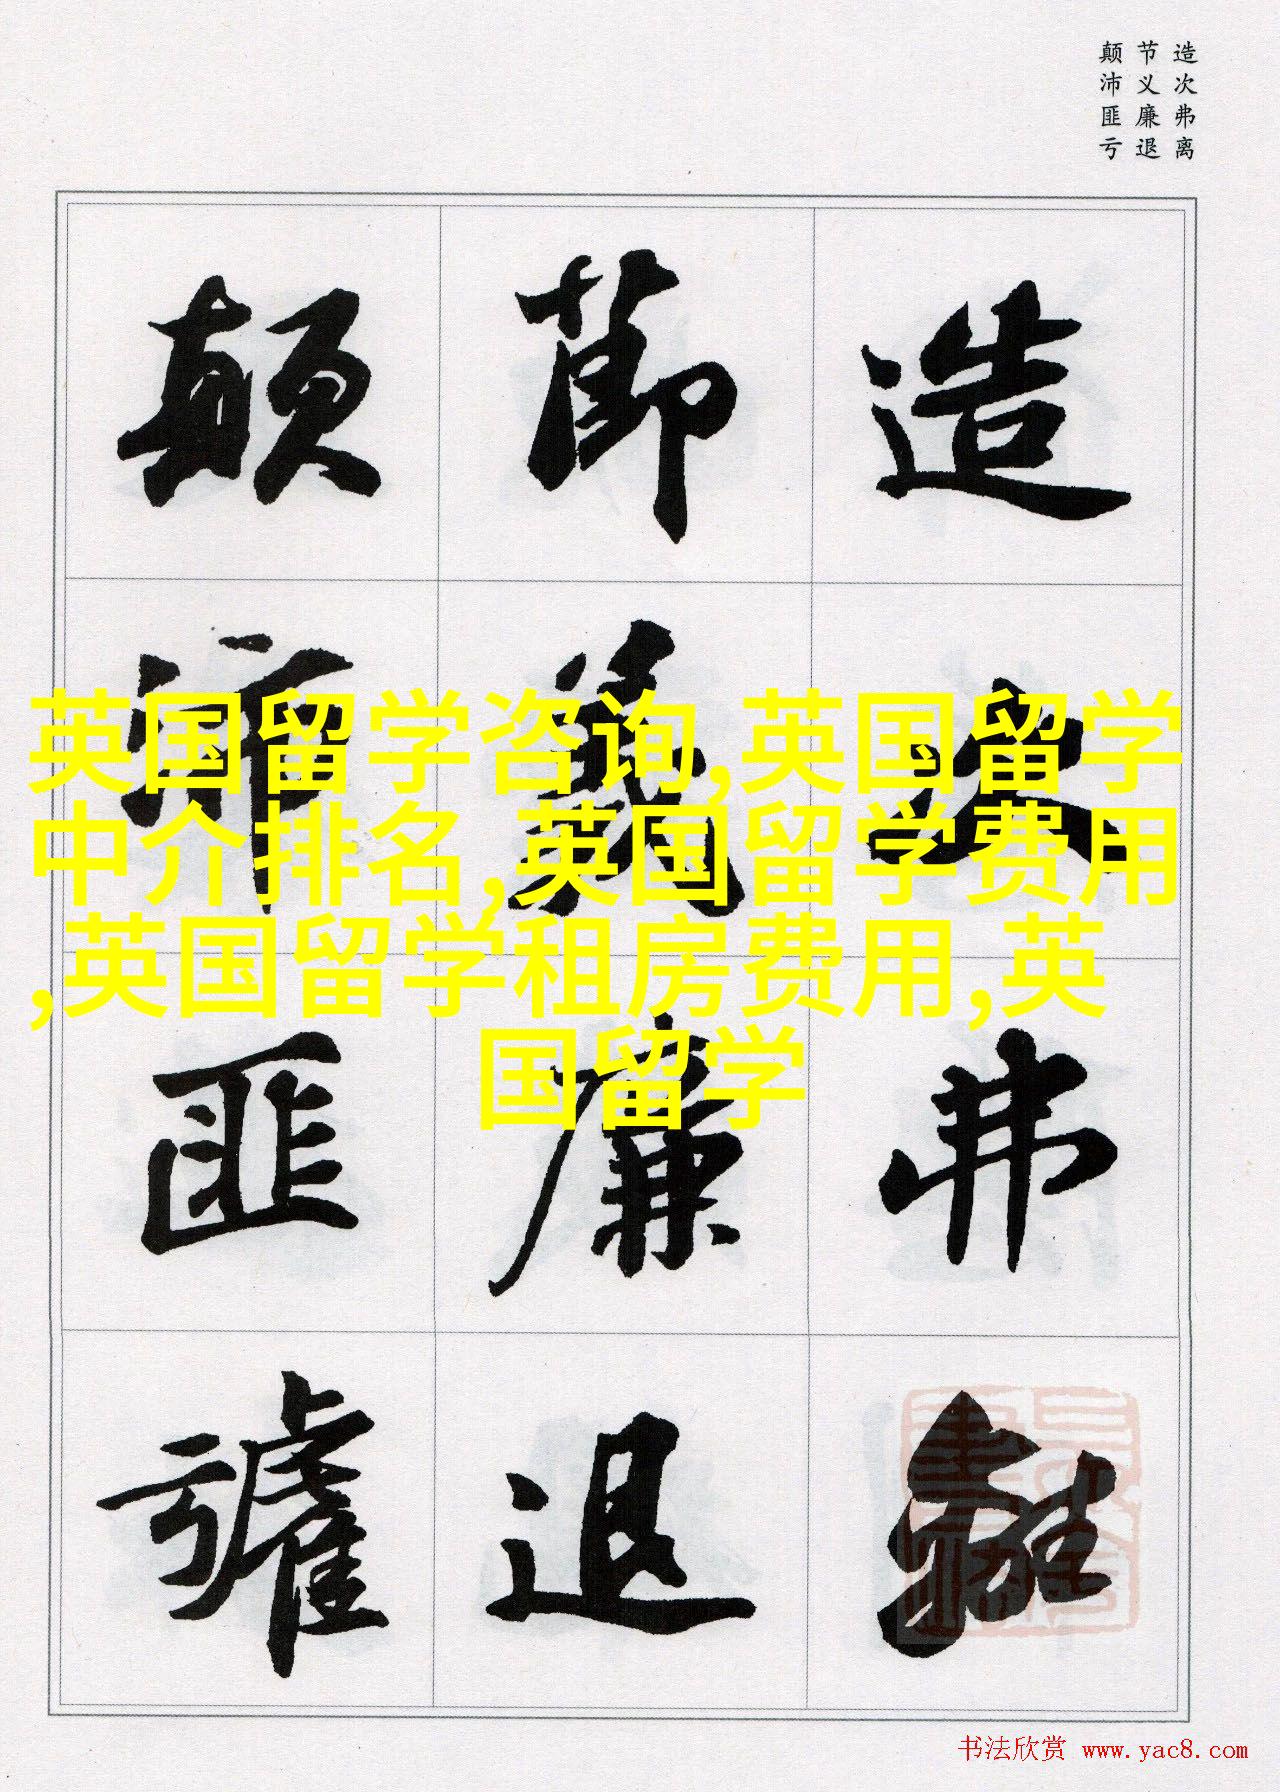 造次弗离
节义廉退
颠沛匪亏
造次弗離
節義廉退
顛沛匪虧
英国留学咨询,英国留学
中介排名,英国留学费用
,英国留学租房费用,英
国留学
书法欣赏 www.yac8.com